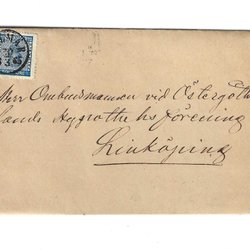 Herr Ombudsmannen vid Östergöth
lands Hypotheks förening
Linköping